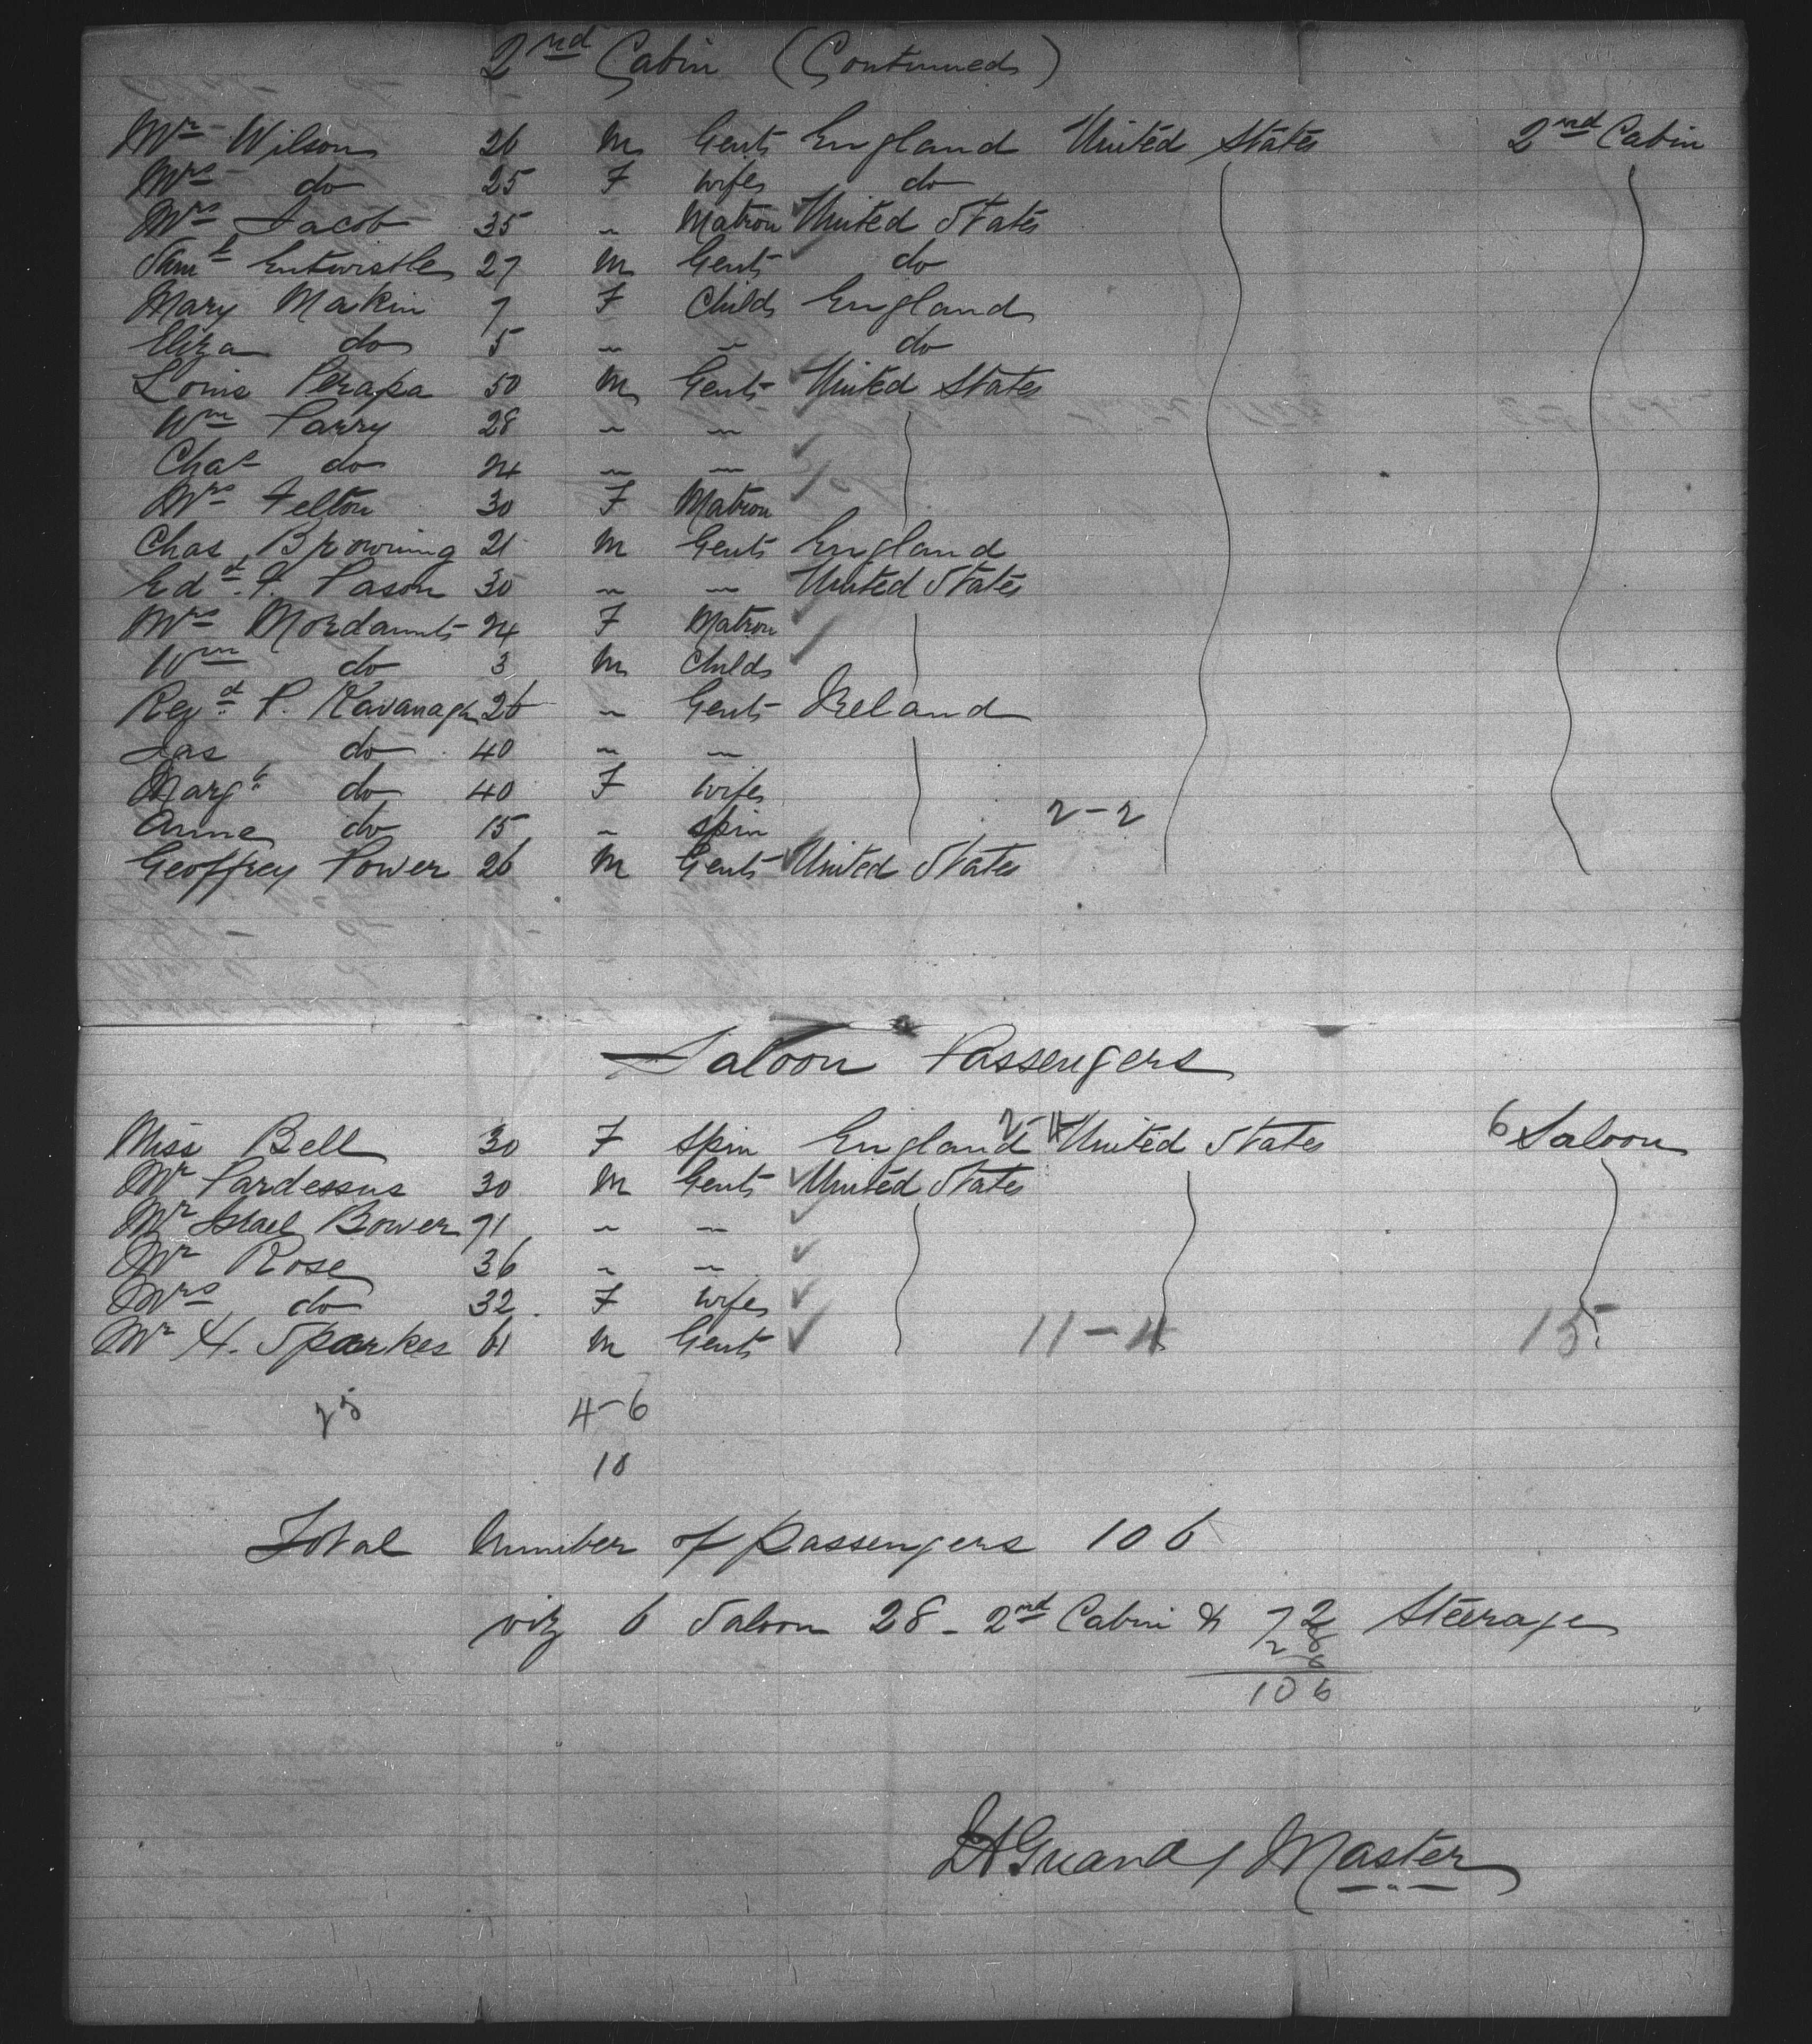 2nd Cabin (Continued)
Mr Wilson 26 M Gent England United States 2nd Cabin
Mrs do 25 F Wife do
Mrs Jacob 35 " Matron United States
Saml Entwistle 27 M Gent do
Mary Makin 7 F Child England
Eliza do 5 " " do
Louis Perapa 50 M Gent United States
Wm Parry 28 " "
Chas do 24 " "
Mrs Felton 30 F Matron
Chas Browning 21 M Gent England
Edd. F. Pason 30 " " United States
Mrs Mordaunt 24 F Matron
Wm do 3 M Child
Revd. P. Kavanagh 26 " Gent Ireland
Jas do 40 " "
Margt do 40 F Wife
2-2
Anne do 15 " Spin
Geoffrey Power 26 M Gent United States
Saloon Passengers
Miss Bell 30 F Spin England 2-4 United States 6 Saloon
Mr Pardessus 30 M Gent United States
Mr Israel Bower 71 " "
Mr Rose 36 " "
Mrs do 32 F Wife
Mr H. Sparkes 61 M Gent 11-4 15
25 4-6
10
Total Number of Passengers 106
viz 6 Saloon 28 - 2nd Cabin & 72 Steerage
28
6
106
Master